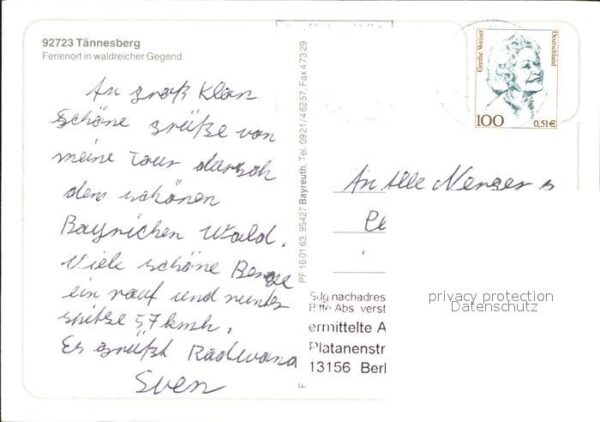 92723 Tännesberg
Ferienort in waldreicher Gegend
An groß Klan
schöne grüße von
meine Tour dursch
den schönen
Bayrichen Wald.
Viele schöne Berge
ein rauf und runter
spitze 57 kmh.
Es grüßt
Sven
PF 16 01 63, 95427 Bayreuth, Tel. 0921/46257, Fax 47329
Grethe Weiser
Deutschland
100
0,51€
An Alle
Sdg nachadres
Bitte Abs. verst
ermittelte A
Platanenstr
13156 Berl
privacy protection
Datenschutz